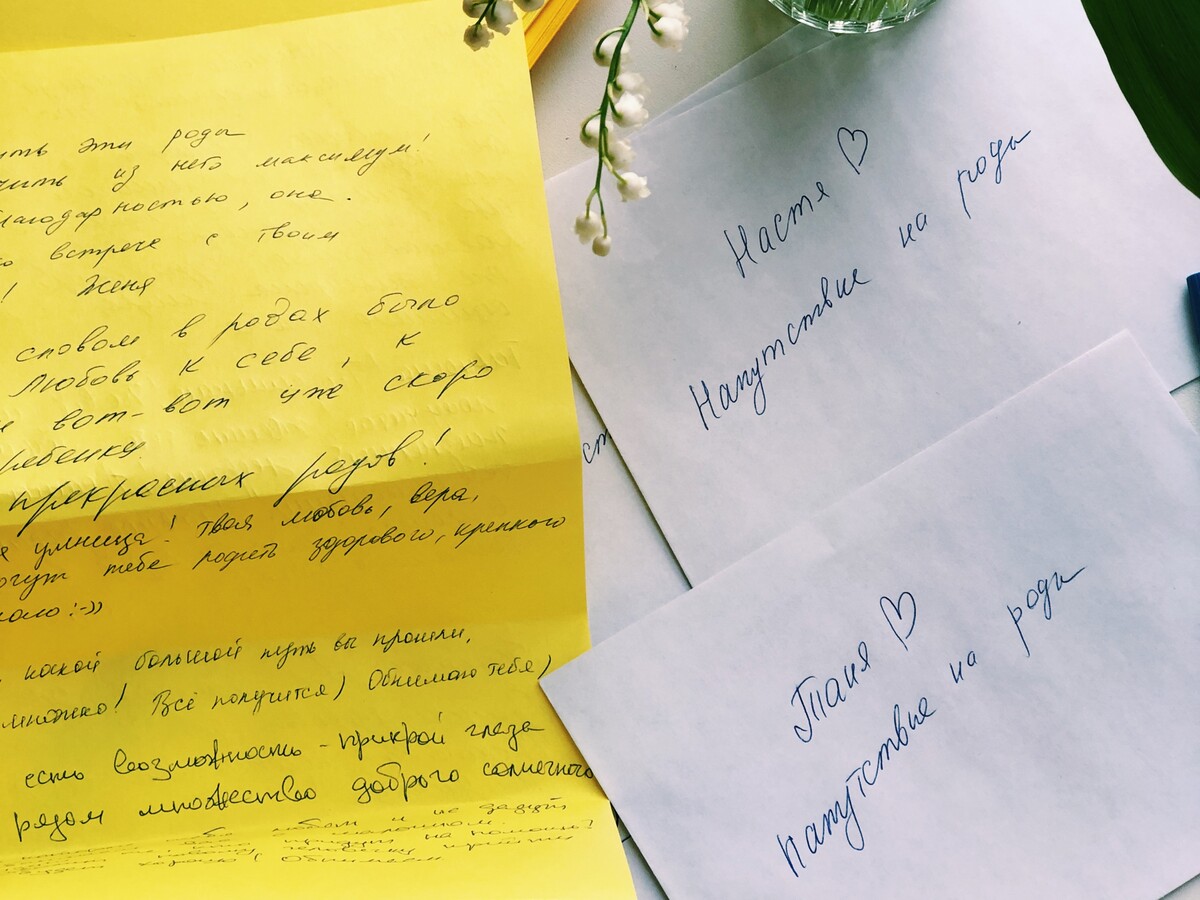 эти роды
из него максимум!
благодарностью, она.
встрече с твоим
! Женя
словом в родах было
Любовь к себе, к
вот-вот уже скоро
ребенка
прекрасных родов!
умница! Твоя любовь, вера,
тебе родить здорового, крепкого
:-))
какой большой путь вы прошли,
Всё получится) Обнимаю тебя)
есть возможность - прикрой глаза
рядом множество доброго солнечного
Обнимаем
Настя ♡
Напутствие на роды
ст
Таня ♡
напутствие на роды